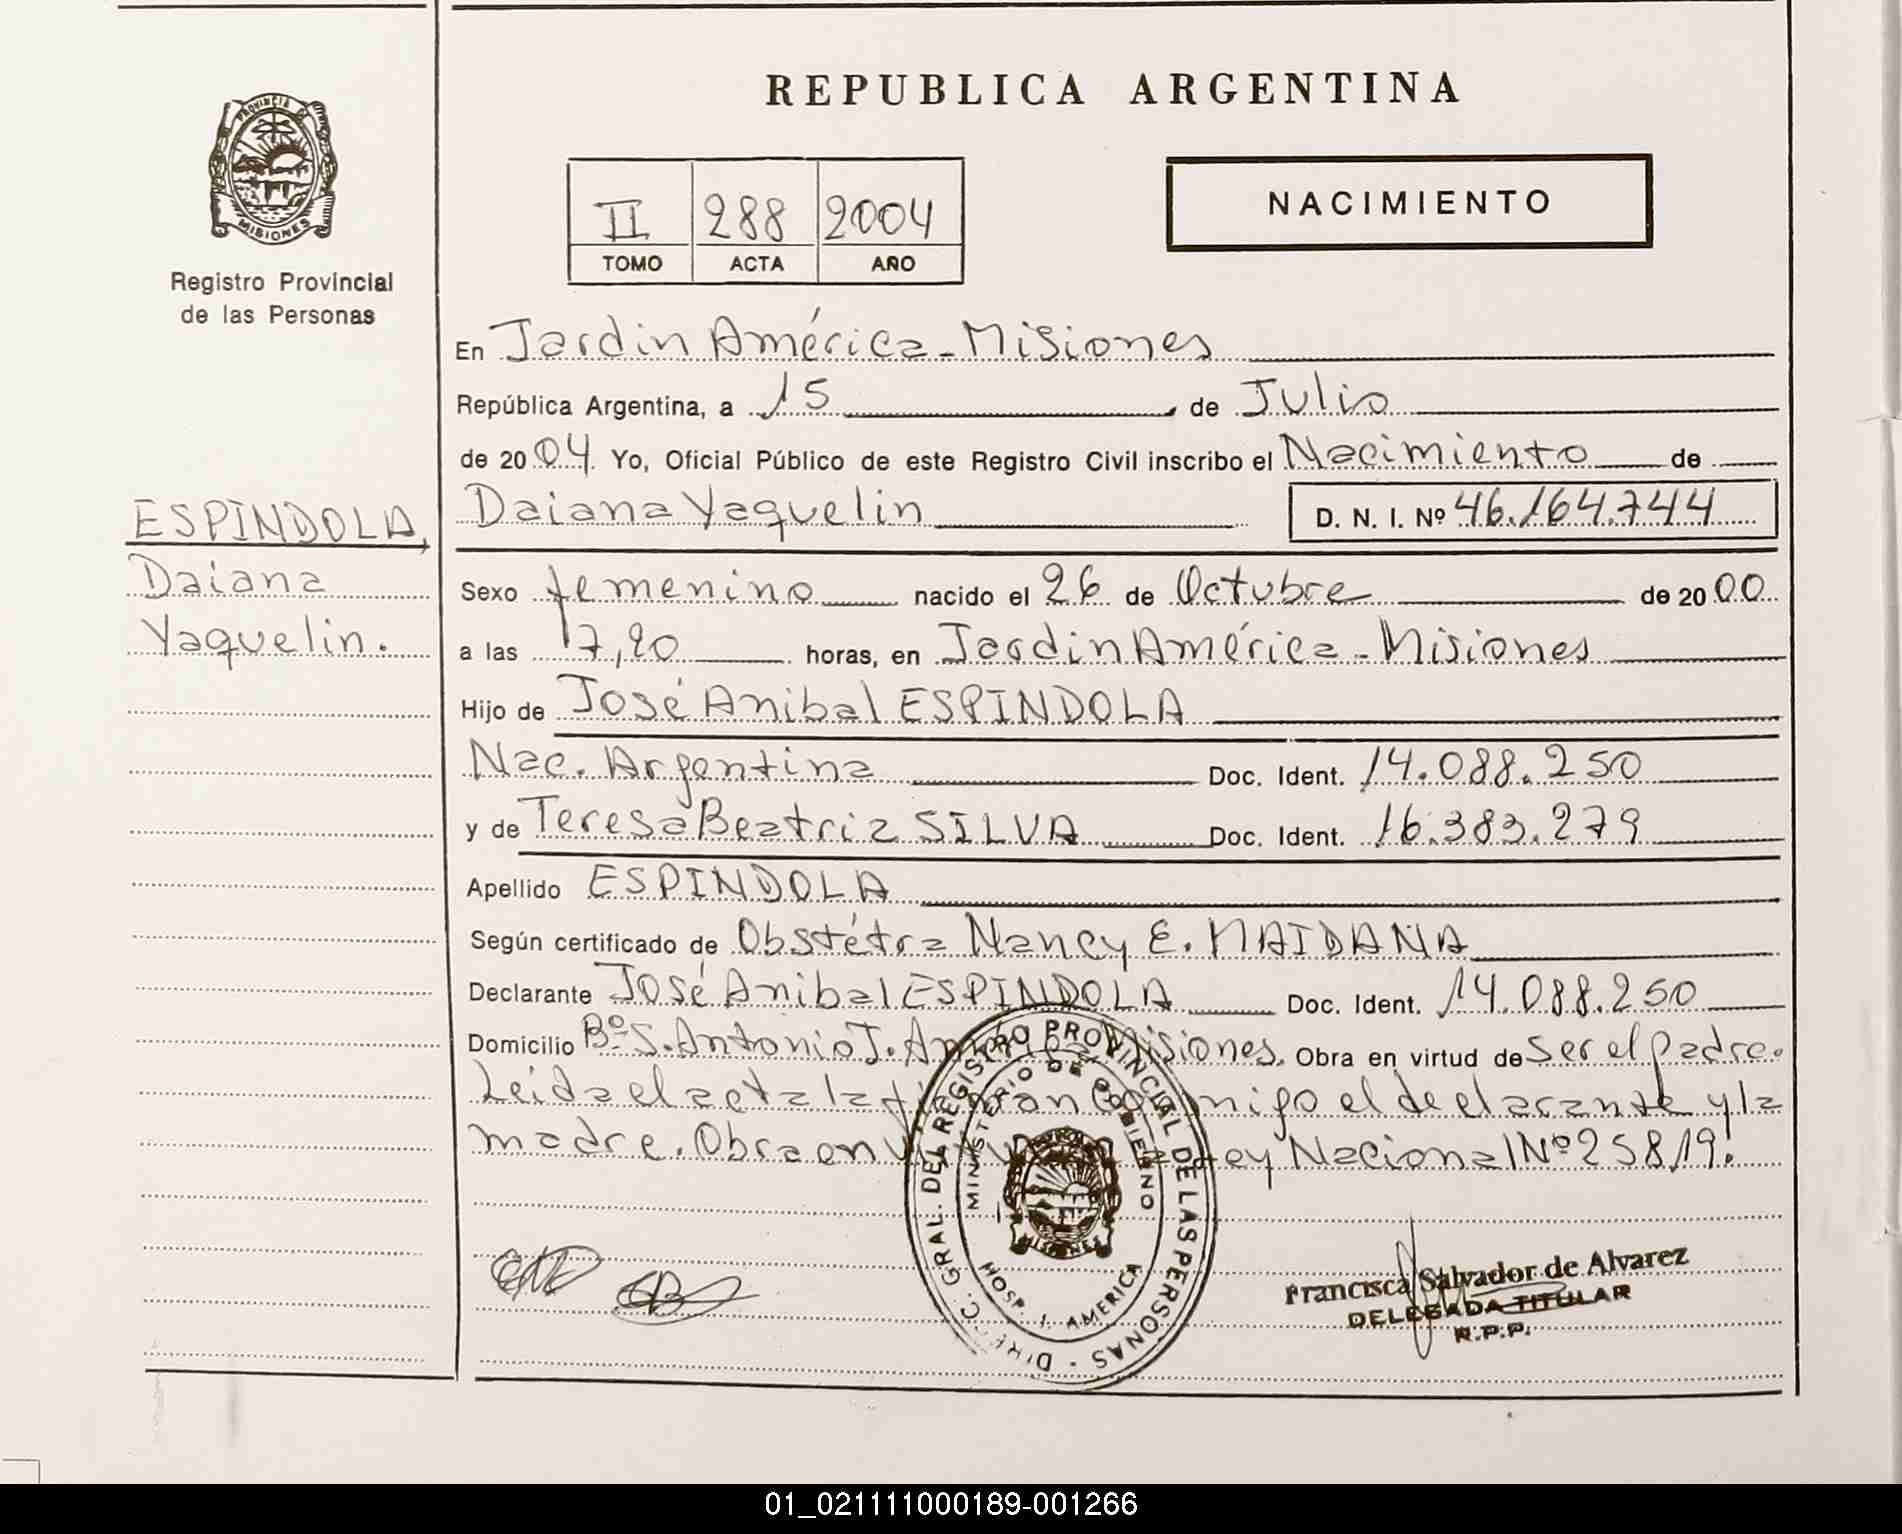 REPUBLICA ARGENTINA
PROVINCIA DE MISIONES
Registro Provincial
de las Personas
II 288 2004
TOMO ACTA AÑO
NACIMIENTO
ESPINDOLA,
Daiana
Yaquelin.
En Jardin América - Misiones
República Argentina, a 15 de Julio
de 2004. Yo, Oficial Público de este Registro Civil inscribo el Nacimiento de
Daiana Yaquelin D. N. I. Nº 46.164.744
Sexo femenino nacido el 26 de Octubre de 2000
a las 7,20 horas, en Jardin América - Misiones
Hijo de José Anibal ESPINDOLA
Nac. Argentina Doc. Ident. 14.088.250
y de Teresa Beatriz SILVA Doc. Ident. 16.383.279
Apellido ESPINDOLA
Según certificado de Obstétra Nancy E. MAIDANA
Declarante José Anibal ESPINDOLA Doc. Ident. 14.088.250
Domicilio Bº S. Antonio J. América Misiones. Obra en virtud de Ser el padre.
Leida el acta la firman conmigo el declarante y la
madre. Obra en virtud Ley Nacional Nº 25819.
DIREC. GRAL. DEL REGISTRO PROVINCIAL DE LAS PERSONAS
MINISTERIO DE GOBIERNO
MISIONES
HOSP. J. AMERICA
Francisca Salvador de Alvarez
DELEGADA TITULAR
R.P.P.
01_021111000189-001266